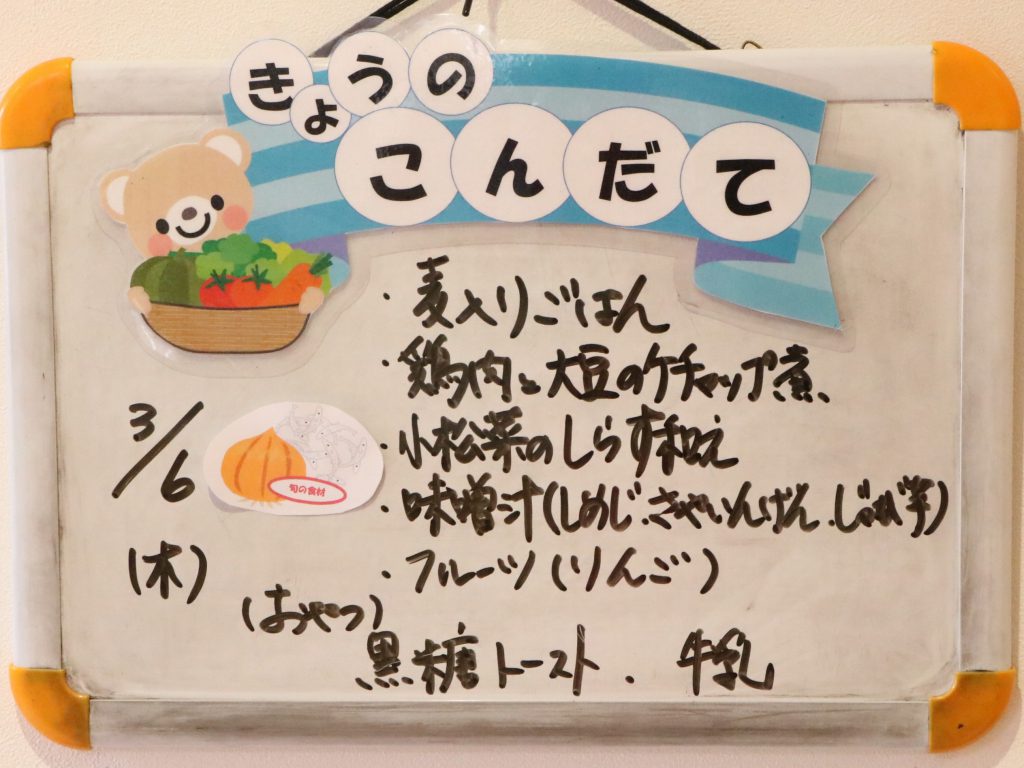 きょうの
こんだて
・麦入りごはん
・鶏肉と大豆のケチャップ煮
3/6
旬の食材
・小松菜のしらす和え
・味噌汁(しめじ.さやいんげん.じゃが芋)
(木)
・フルーツ(りんご)
(おやつ)
黒糖トースト.牛乳